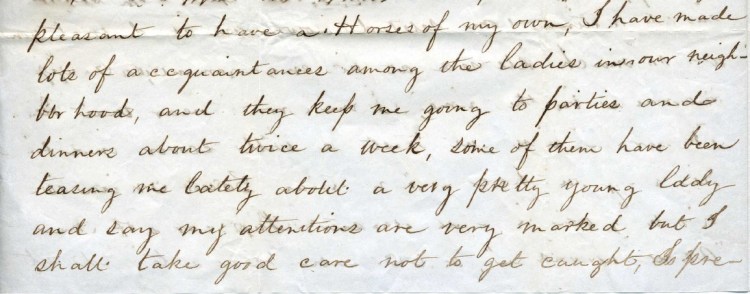 pleasant to have a Horses of my own, I have made
lots of accquaintances among the ladies in our neigh-
bor hood, and they keep me going to parties and
dinners about twice a week, some of them have been
teasing me lately about a very pretty young Lady
and say my attentions are very marked, but I
shall take good care not to get caught, Is pre-